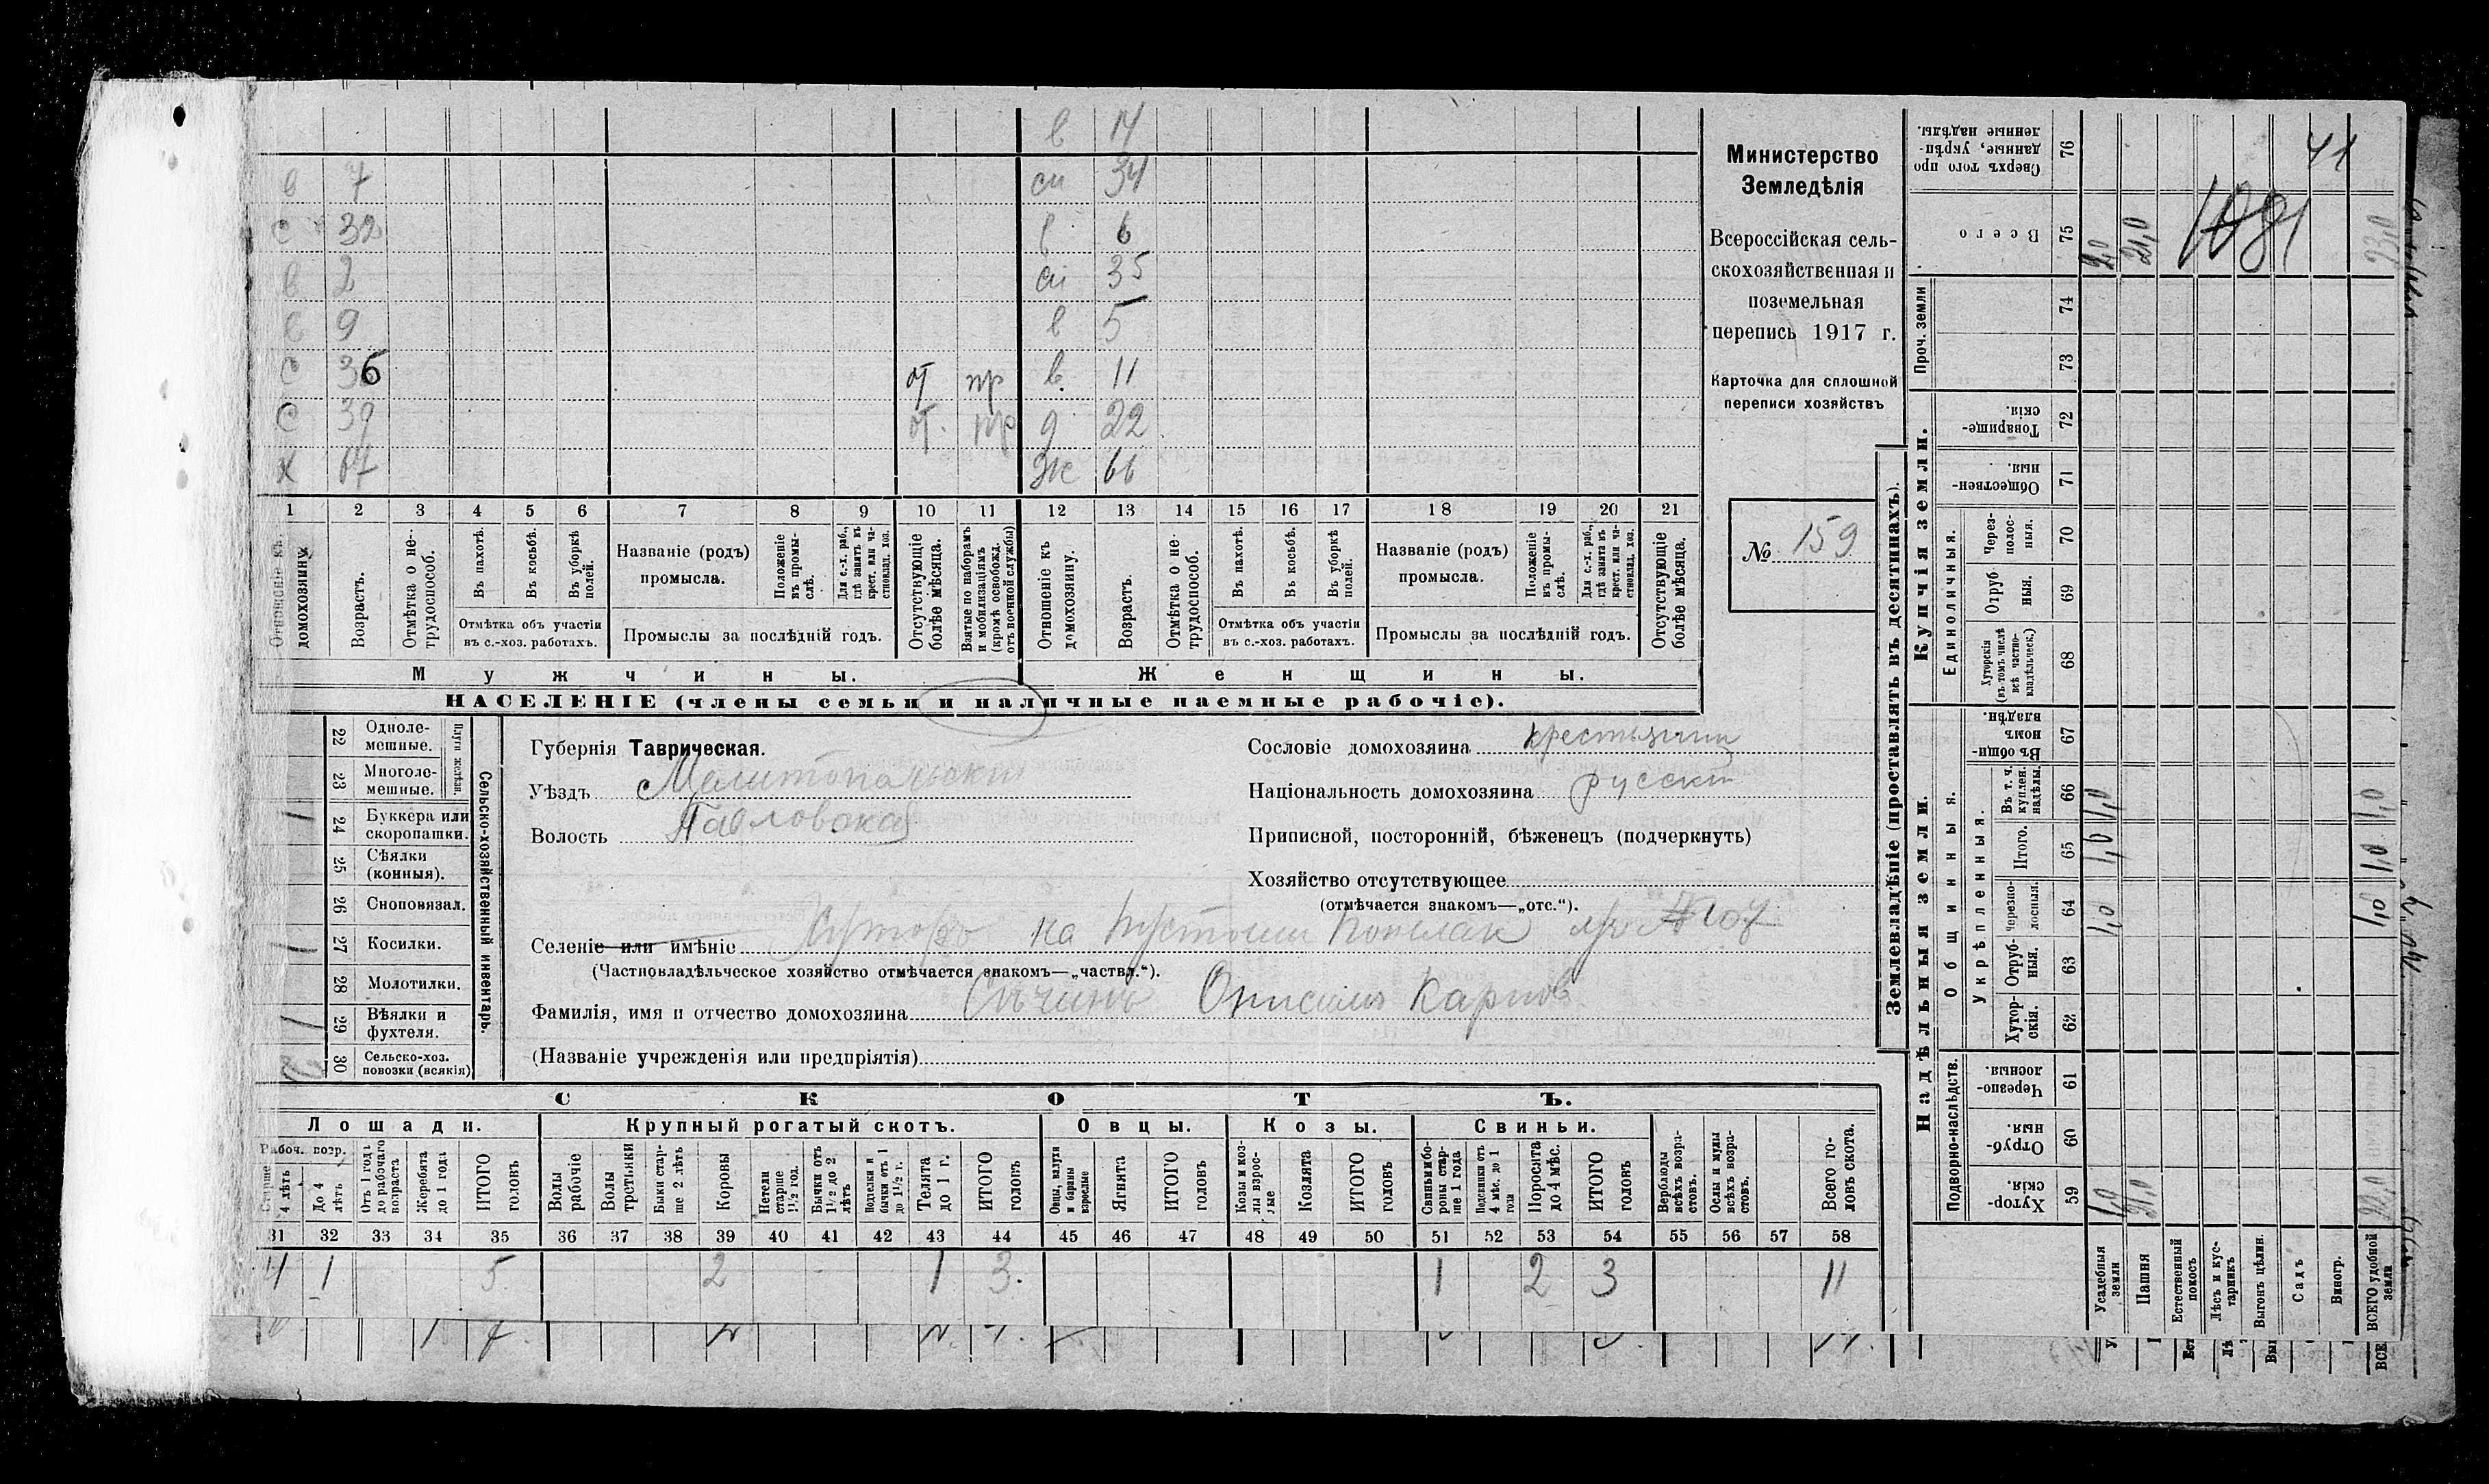 в 14
в 7 сн 34
с 32 в 6
в 2 сн 35
в 9 в 5
с 36 от пр в. 11
с 39 от. пр д 22
х 67 Ж 66
1 2 3 4 5 6 7 8 9 10 11 12 13 14 15 16 17 18 19 20 21
Отношеніе къ домохозяину.
Возрастъ.
Отмѣтка о не-трудоспособ.
Въ пахотѣ.
Въ косьбѣ.
Въ уборкѣ полей.
Отмѣтка объ участіи въ с.-хоз. работахъ.
Названіе (родъ) промысла.
Положеніе въ промы-слѣ.
Для с.-х. раб., гдѣ занятъ въ крест. или ча-стновлад. хоз.
Промыслы за послѣдній годъ.
Отсутствующіе болѣе мѣсяца.
Взятые по наборамъ и мобилизаціямъ (кромѣ освобожд. отъ военной службы)
Отношеніе къ домохозяину.
Возрастъ.
Отмѣтка о не-трудоспособ.
Въ пахотѣ.
Въ косьбѣ.
Въ уборкѣ полей.
Отмѣтка объ участіи въ с.-хоз. работахъ.
Названіе (родъ) промысла.
Положеніе въ промы-слѣ.
Для с.-х. раб., гдѣ занята въ крест. или ча-стновлад. хоз.
Промыслы за послѣдній годъ.
Отсутствующіе болѣе мѣсяца.
Мужчины. Женщины.
НАСЕЛЕНІЕ (члены семьи и наличные наемные рабочіе).
Министерство
Земледѣлія
Всероссійская сель-
скохозяйственная и
поземельная
перепись 1917 г.
Карточка для сплошной
переписи хозяйствъ
№ 159
Сельско-хозяйственный инвентарь.
Плуги желѣзн.
22 Одноле-мешные.
23 Многоле-мешные.
24 Буккера или скоропашки. 1
25 Сѣялки (конныя).
26 Сноповязал.
27 Косилки. 1
28 Молотилки.
29 Вѣялки и фухтеля. 1
30 Сельско-хоз. повозки (всякія) 2
Губернія Таврическая.
Уѣздъ Мелитопольскій
Волость Павловская
Сословіе домохозяина крестьянин
Національность домохозяина русскій
Приписной, посторонній, бѣженецъ (подчеркнуть)
Хозяйство отсутствующее
(отмѣчается знакомъ—„отс.“).
Селеніе или имѣніе Хуторъ на
(Частновладѣльческое хозяйство отмѣчается знакомъ—„частвл.“).
Фамилія, имя и отчество домохозяина Сѣчинъ Карповъ
(Названіе учрежденія или предпріятія)
СКОТЪ.
Лошади. Крупный рогатый скотъ. Овцы. Козы. Свиньи.
Рабоч. возр.
Старше 4 лѣтъ
До 4 лѣтъ
Отъ 1 года до рабочаго возраста
Жеребята до 1 года
ИТОГО головъ
Волы рабочіе
Волы третьяки
Быки стар-ше 2 лѣтъ
Коровы
Нетели старше 1 1/2 год.
Бычки отъ 1 1/2 до 2 лѣтъ
Подтелки и бычки отъ 1 до 1 1/2 г.
Телята до 1 г.
ИТОГО головъ
Овцы, валухи и бараны взрослые
Ягнята
ИТОГО головъ
Козы и коз-лы взрос-лые
Козлята
ИТОГО головъ
Свиньи и бо-ровы стар-ше 1 года
Подсвинки отъ 4 мѣс. до 1 года
Поросята до 4 мѣс.
ИТОГО головъ
Верблюды всѣхъ возра-стовъ.
Ослы и мулы всѣхъ возра-стовъ.
Всего го-ловъ скота.
31 32 33 34 35 36 37 38 39 40 41 42 43 44 45 46 47 48 49 50 51 52 53 54 55 56 57 58
4 1 5 2 1 3. 1 2 3 11
Землевладѣніе (проставлять въ десятинахъ).
Надѣльныя земли. Купчія земли. Проч. земли
Подворно-наслѣдств.
Общинныя.
Укрѣпленныя.
Единоличныя.
Хутор-скія. 59
Отруб-ныя. 60
Черезпо-лосныя. 61
Хутор-скія. 62
Отруб-ныя. 63
Черезпо-лосныя. 64
Итого. 65
Въ т. ч. куплен. надѣлы. 66
Въ общин-номъ владѣн. 67
Хуторскія (въ томъ числѣ всѣ частно-владѣльческ.) 68
Отруб ныя. 69
Через-полос-ныя. 70
Обществен-ныя. 71
Товарище-скія. 72
73
74
Всего 75
Сверхъ того про данные, укрѣп-ленные надѣлы. 76
Усадебныя земли 1,0 1,0 1,0 1,0 2,0
Пашня 21,0 21,0
Естественный покосъ
Лѣсъ и кус-тарникъ
Выгонъ цѣлин.
Садъ
Виногр.
ВСЕГО удобной земли 22,0 1,0 1,0 1,0 23,0